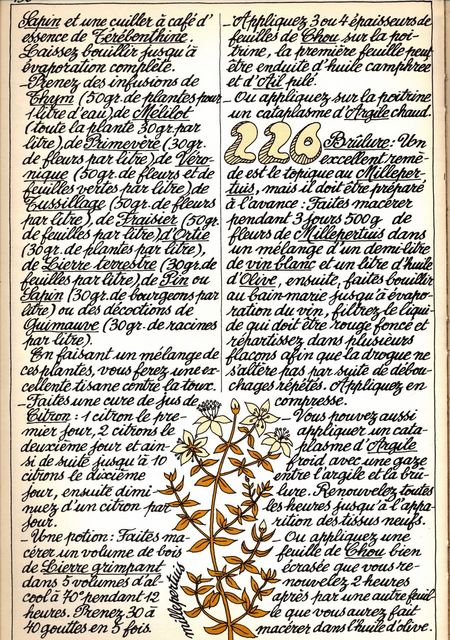 Sapin et une cuiller à café d'
essence de Térébenthine.
Laissez bouillir jusqu'à
évaporation complète.
_Prenez des infusions de
Thym (50gr. de plantes pour
1 litre d'eau), de Mélilot
(toute la plante 30gr. par
litre), de Primevère (30gr.
de fleurs par litre), de Véro-
nique (50gr. de fleurs et de
feuilles vertes par litre), de
Tussillage (50gr. de fleurs
par litre), de Fraisier (50gr.
de feuilles par litre), d'Ortie
(30gr. de plantes par litre),
de Lierre terrestre (30gr. de
feuilles par litre), de Pin ou
Sapin (30gr. de bourgeons par
litre) ou des décoctions de
Guimauve (30gr. de racines
par litre).
En faisant un mélange de
ces plantes, vous ferez une ex-
cellente tisane contre la toux.
_Faites une cure de jus de
Citron : 1 citron le pre-
mier jour, 2 citrons le
deuxième jour et ain-
si de suite jusqu'à 10
citrons le dixième
jour, ensuite dimi-
nuez d'un citron par
jour.
_Une potion : Faites ma-
cérer un volume de bois
de Lierre grimpant
dans 5 volumes d'al-
cool à 70° pendant 12
heures. Prenez 30 à
40 gouttes en 5 fois.
_Appliquez 3 ou 4 épaisseurs de
feuilles de Chou sur la poi-
trine, la première feuille peut
être enduite d'huile camphrée
et d'Ail pilé.
_Ou appliquez sur la poitrine
un cataplasme d'Argile chaud.
226 Brûlure : Un
excellent remè-
de est le topique au Milleper-
tuis, mais il doit être préparé
à l'avance : Faites macérer
pendant 3 jours 500g de
fleurs de Millepertuis dans
un mélange d'un demi-litre
de vin blanc et un litre d'huile
d'Olive, ensuite, faites bouillir
au bain-marie jusqu'à évapo-
ration du vin, filtrez le liqui-
de qui doit être rouge foncé et
répartissez dans plusieurs
flacons afin que la drogue ne
s'altère pas par suite de débou-
chages répétés. Appliquez en
compresse.
_Vous pouvez aussi
appliquer un cata-
plasme d'Argile
froid avec une gaze
entre l'argile et la brû-
lure. Renouvelez toutes
les heures jusqu'à l'appa-
rition des tissus neufs.
_Ou appliquez une
feuille de Chou bien
écrasée que vous re-
nouvelez 2 heures
après par une autre feuil-
le que vous aurez fait
macérer dans l'huile d'olive.
millepertuis